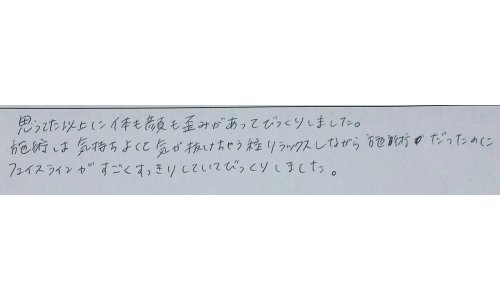 思ってた以上に体も顔も歪みがあってびっくりしました。
施術は気持ちよくて気が抜けちゃう程リラックスしながら施術だったのに
フェイスラインがすごくすっきりしていてびっくりしました。